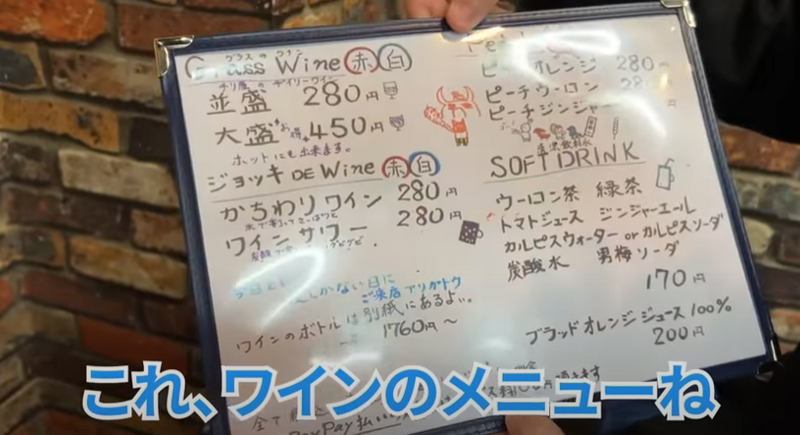 Glass Wine 赤 白
グラスのワイン
チリ産のデイリーワイン
並盛 280円
大盛 お得 450円
ホットにも出来ます。
ジョッキ DE Wine 赤 白
かちわりワイン 280円
氷で割ってさっぱりと
ワインサワー 280円
炭酸で
しかない日に
ご来店アリガトウ
ワインのボトルは別紙にあるよ。
1760円〜
オレンジ 280円
ピーチウーロン 280
ピーチジンジャー
清涼飲料水
SOFT DRINK
ウーロン茶 緑茶
トマトジュース ジンジャーエール
カルピスウォーター or カルピスソーダ
炭酸水 男梅ソーダ
170円
ブラッドオレンジジュース100%
200円
PayPay払い
これ、ワインのメニューね